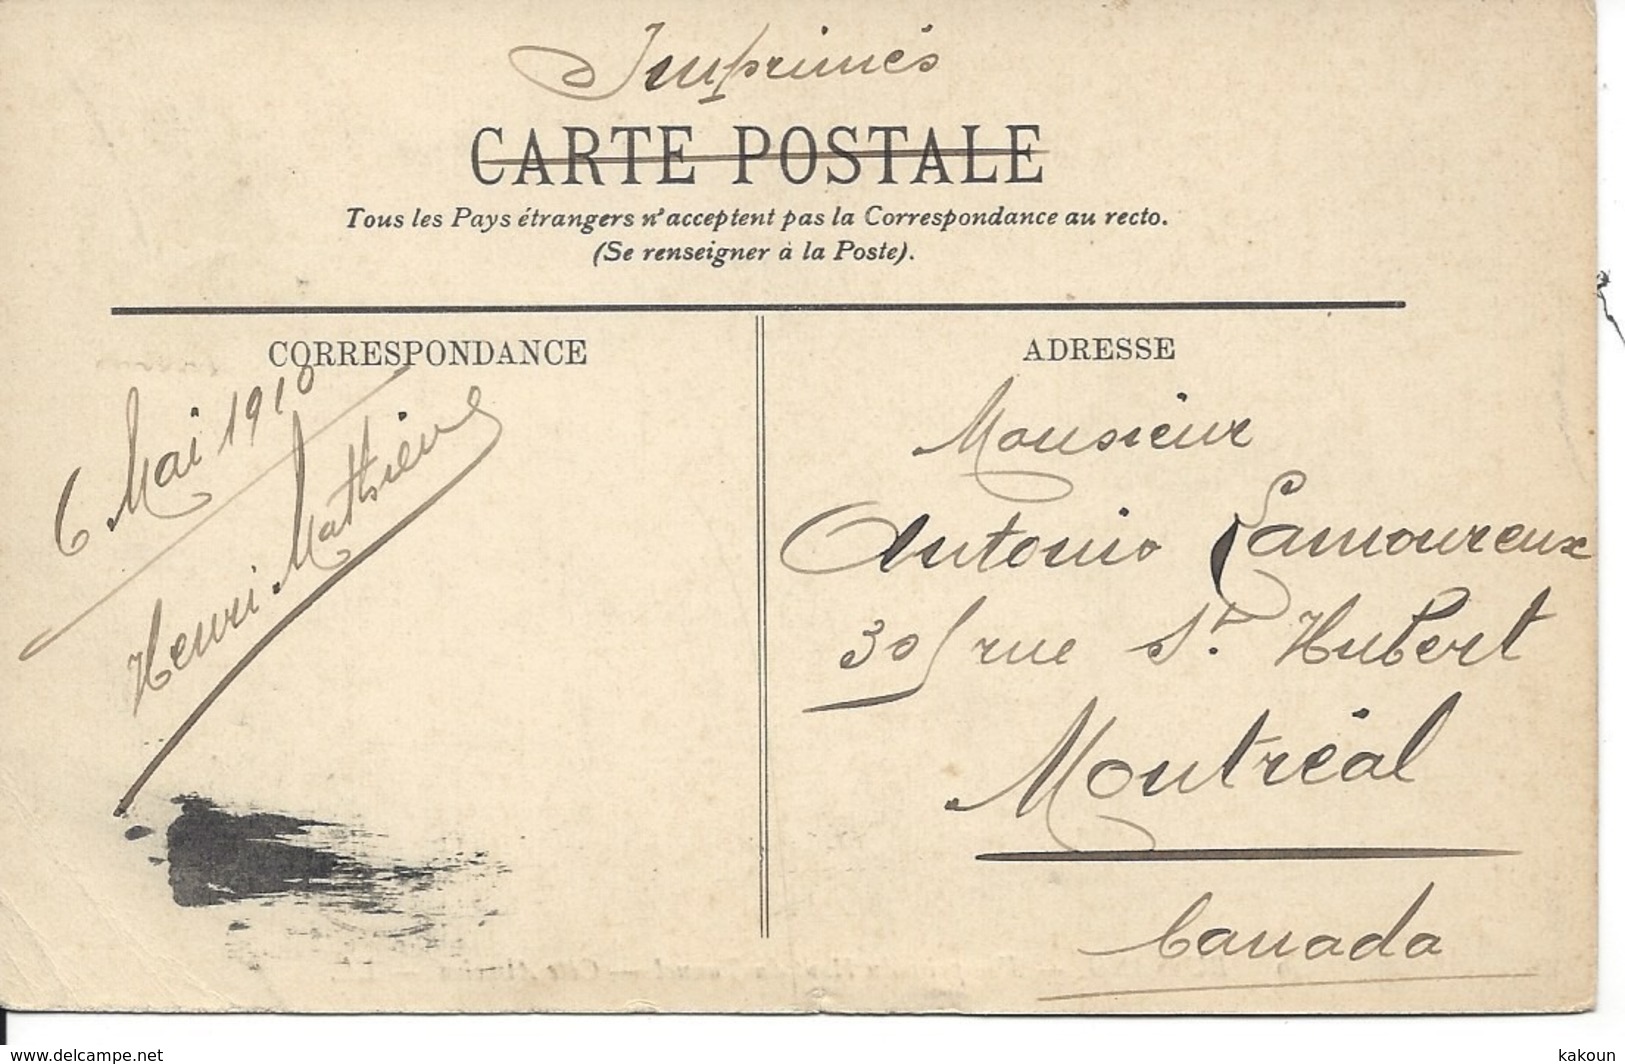 Imprimés
CARTE POSTALE
Tous les Pays étrangers n'acceptent pas la Correspondance au recto.
(Se renseigner à la Poste).
CORRESPONDANCE
6 Mai 1910
Henri Mathieu
ADRESSE
Monsieur
Antonio Lamoureux
305 rue St. Hubert
Montréal
Canada
www.delcampe.net
kakoun